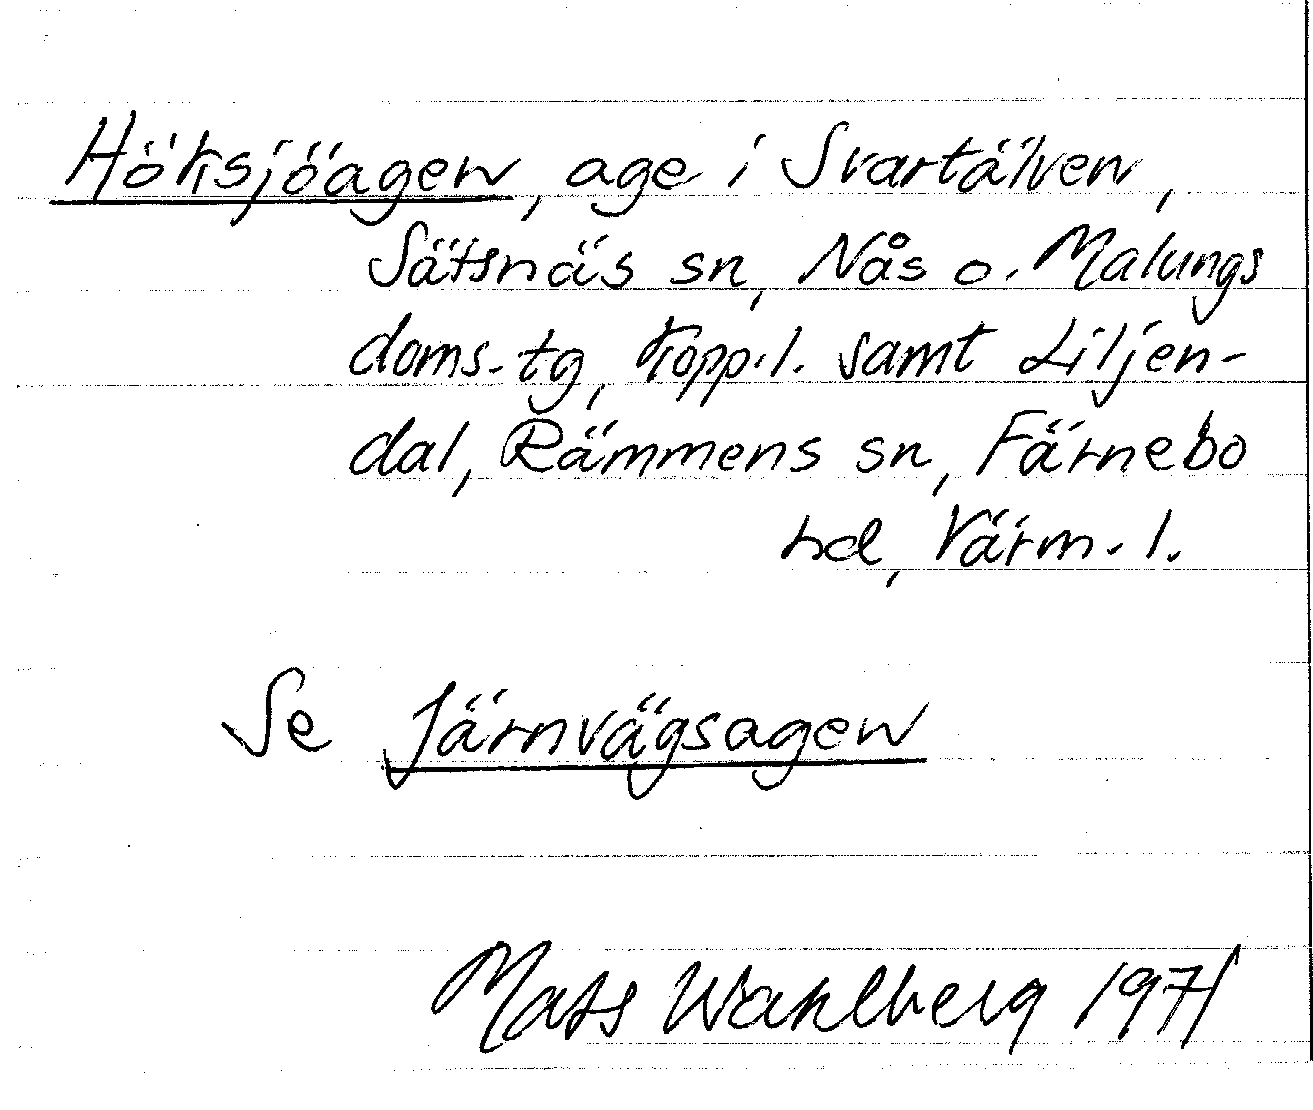 Höksjöagen, age i Svartälven,
Säfsnäs sn, Nås o. Malungs
doms. tg, Kopp.l. samt Liljen-
dal, Rämmens sn, Färnebo
hd, Värm. l.
Se Järnvägsagen
Mats Wahlberg 1971